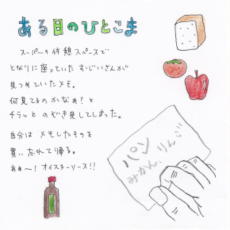 ある日のひとこま
スーパーの休憩スペースで
となりに座っていたおじいさんが
見つめていたメモ。
何見てるのかなぁ？と
チラッとのぞき見してしまった。
自分はメモしたものを
買い忘れて帰る。
あぁ〜！オイスターソース！！
パン
みかん、りんご